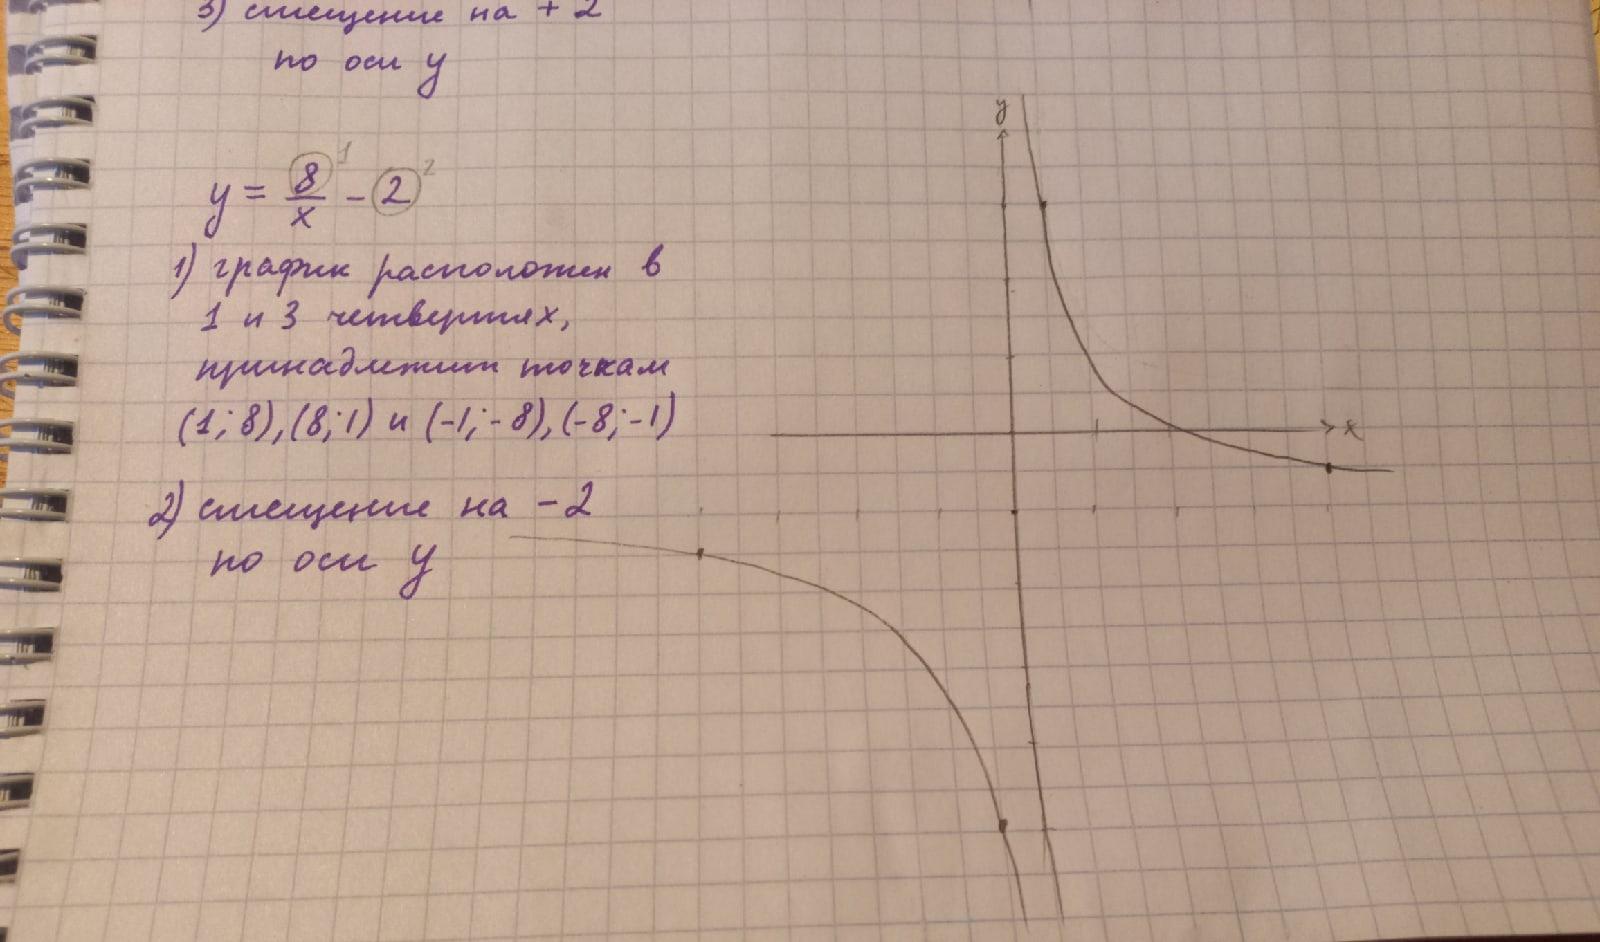 3) смещение на + 2
по оси y
y = 8/x - 2
1 2
1) график расположен в
1 и 3 четвертях,
принадлежит точкам
(1; 8), (8; 1) и (-1; -8), (-8; -1)
2) смещение на - 2
по оси y
y
x